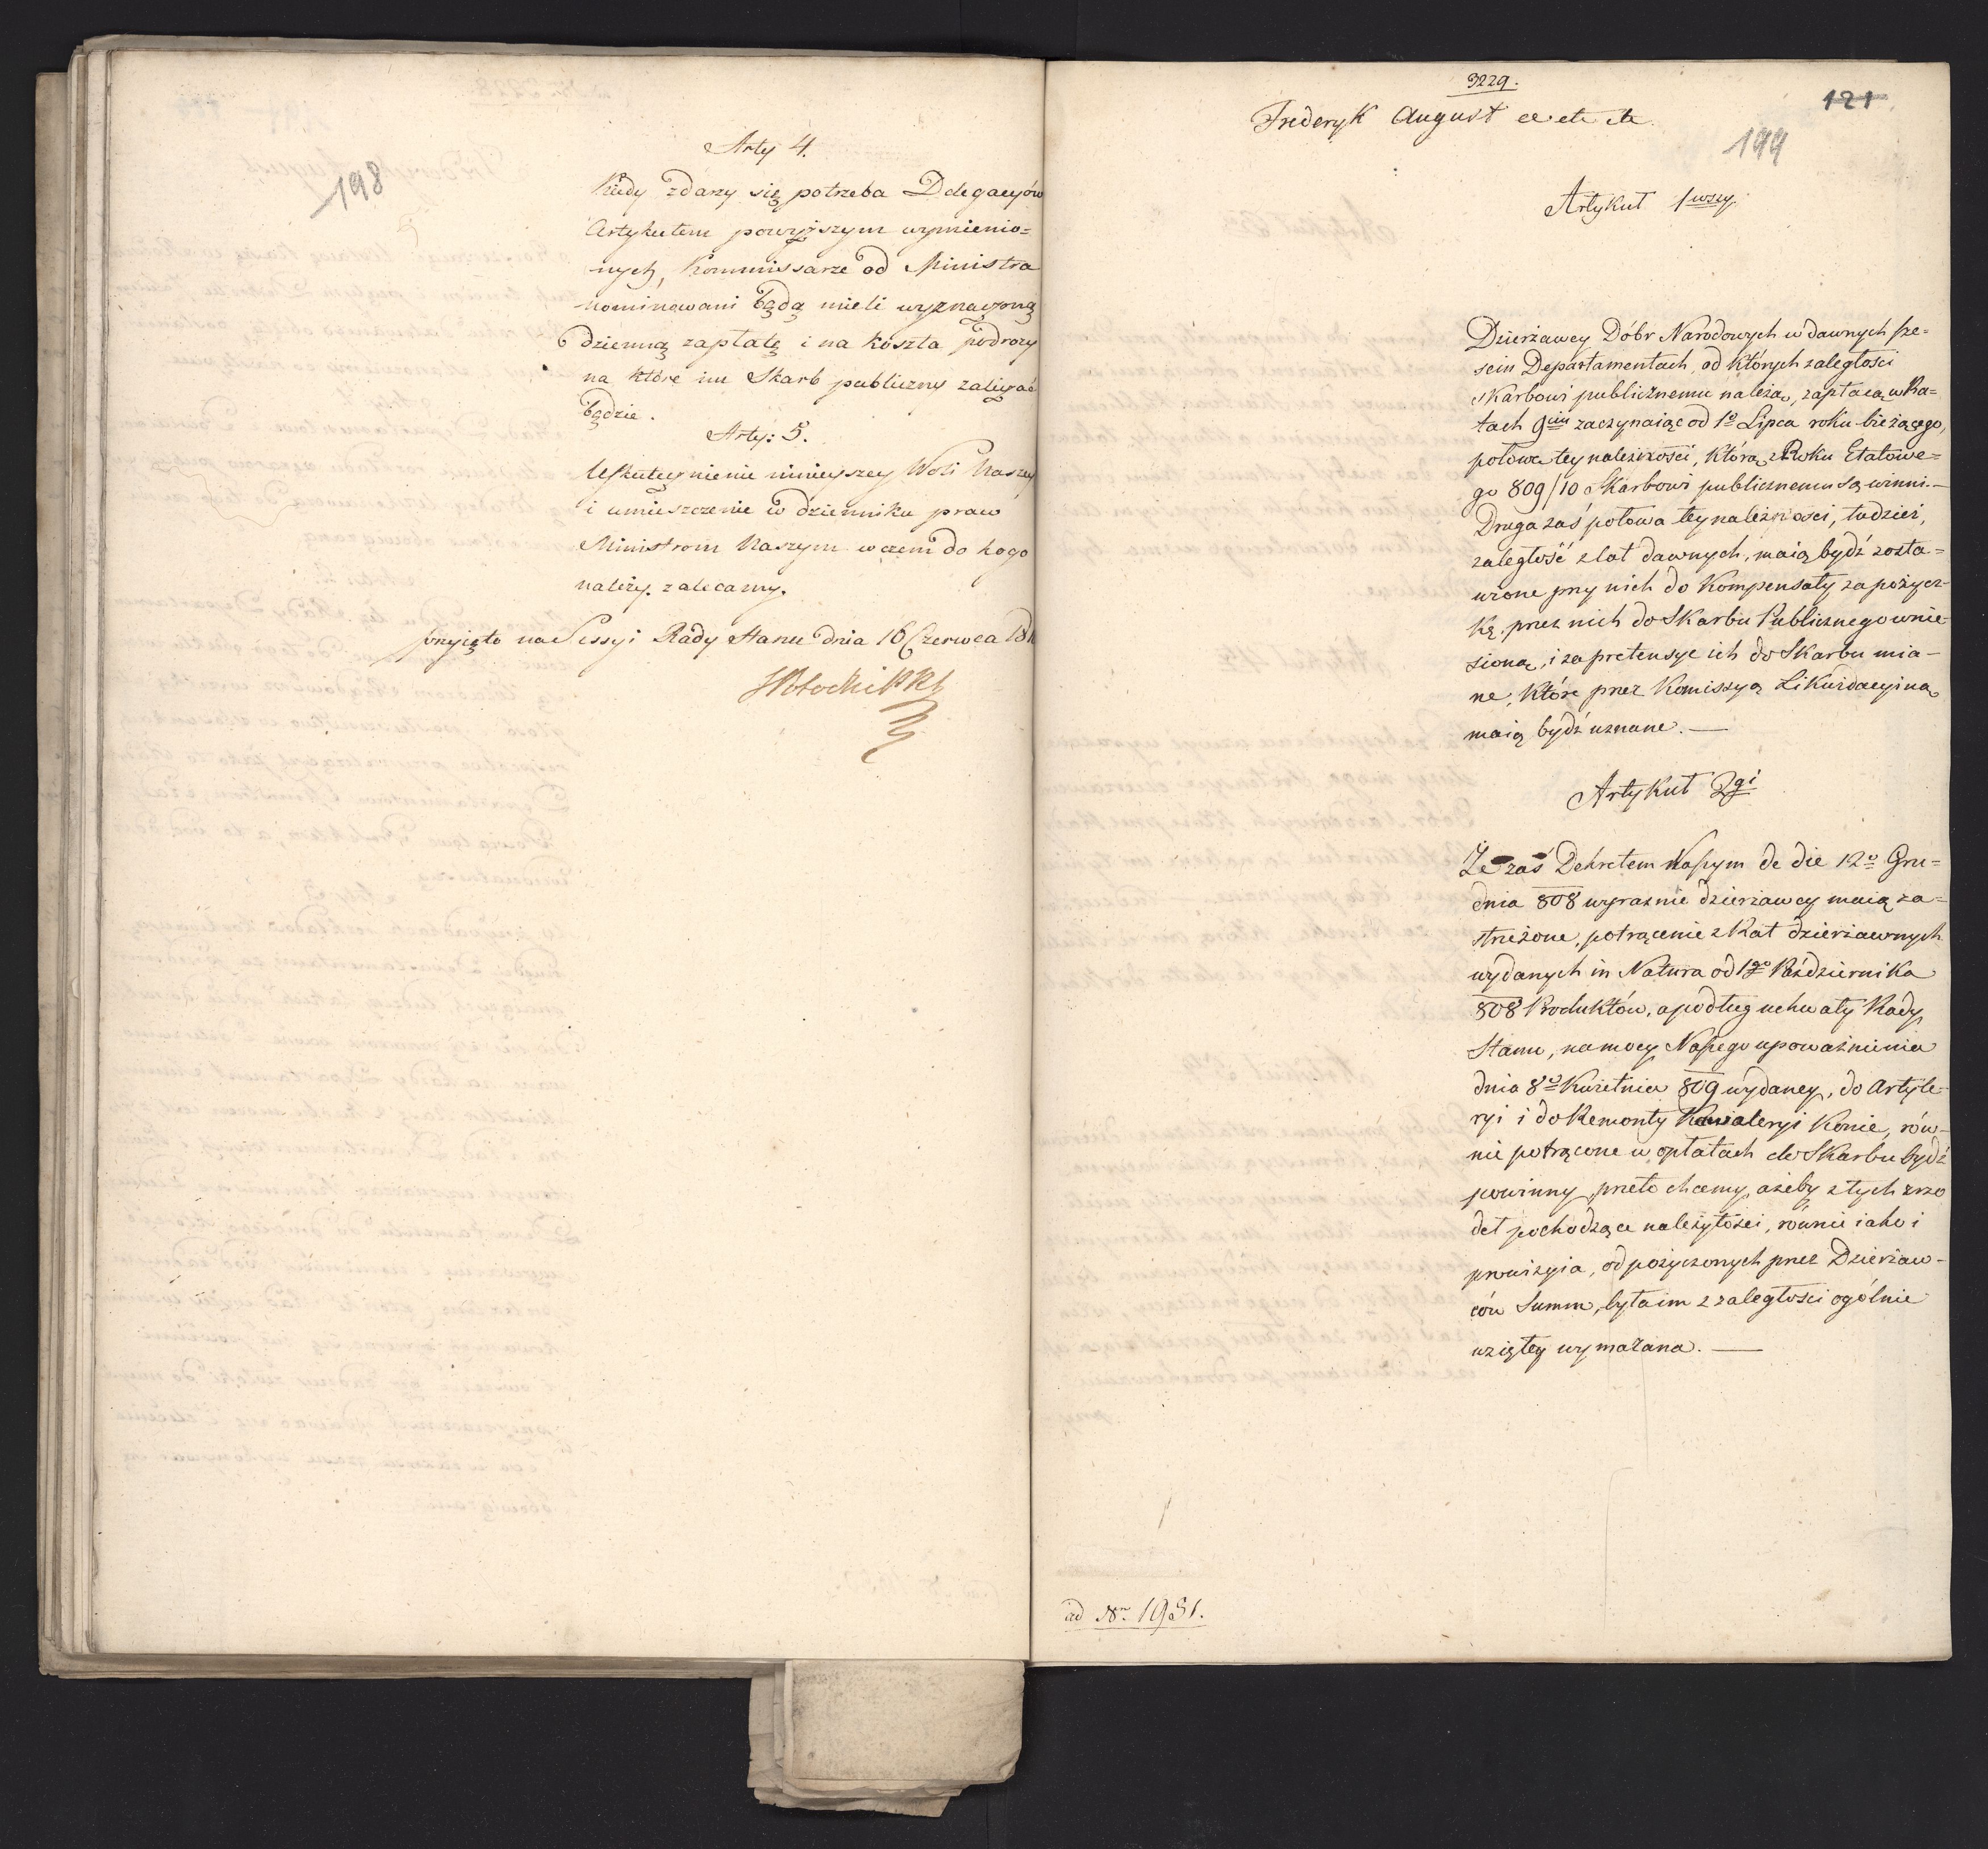 198
Arty 4.
Kiedy zdarzy się potrzeba Delegacyów
Artykułem powyższym wymienio=
nych, Kommissarze od Ministra
nominowani będą mieli wyznaczoną
dzienną zapłatę i na koszta podroży
na które im Skarb publiczny zaliczać
będzie.
Arty: 5.
Uskutecznienie ninieyszey Woli Naszey
i umieszczenie w dzienniku praw
Ministrom Naszym w czem do kogo
należy. zalecamy.
przyięto na Sessyi Rady Stanu dnia 16 Czerwca 181
3229.
121
199
Frederyk August etc etc etc.
Artykuł 1wszy.
Dzierżawcy Dóbr Narodowych w dawnych sze=
sciu Departamentach, od których zaległosci
Skarbowi publicznemu należą, zapłacą w Ra=
tach 9ciu zaczynaiąc od 1o Lipca roku bieżącego,
połowę tey należności, którą z Roku Etatowe=
go 809/10 Skarbowi publicznemu są winni.—
Druga zaś połowa tey należności, tudzież,
zaległość z lat dawnych, maią bydź zosta=
wione przy nich do Kompensaty za pożycz-
kę, przez nich do Skarbu Publicznego wnie-
sioną, i za pretensye ich do Skarbu mia-
ne, które przez Komissyą Likwidacyiną
maią bydź uznane.—
Artykuł 2gi
Że zaś Dekretem Naszym de die 12o Gru=
dnia 808 wyraznie dzierżawcy maią za=
strzeżone, potrącenie z Rat dzierżawnych
wydanych in Natura od 1go Października
808 Produktów, a podług uchwały Rady
Stanu, na mocy Naszego upoważnienia
dnia 8o Kwietnia 809 wydaney, do Artyle-
ryi i do Remonty Kawaleryi Konie, rów-
nie potrącone w opłatach do Skarbu bydź
powinny, przeto chcemy, ażeby z tych zrzo
deł pochodzące należytości, równie iako i
prowizyia, od pożyczonych przez Dzierżaw-
ców Summ, była im z zaległosci ogólnie
wziętey wymazana.—
ad Nr. 1931.